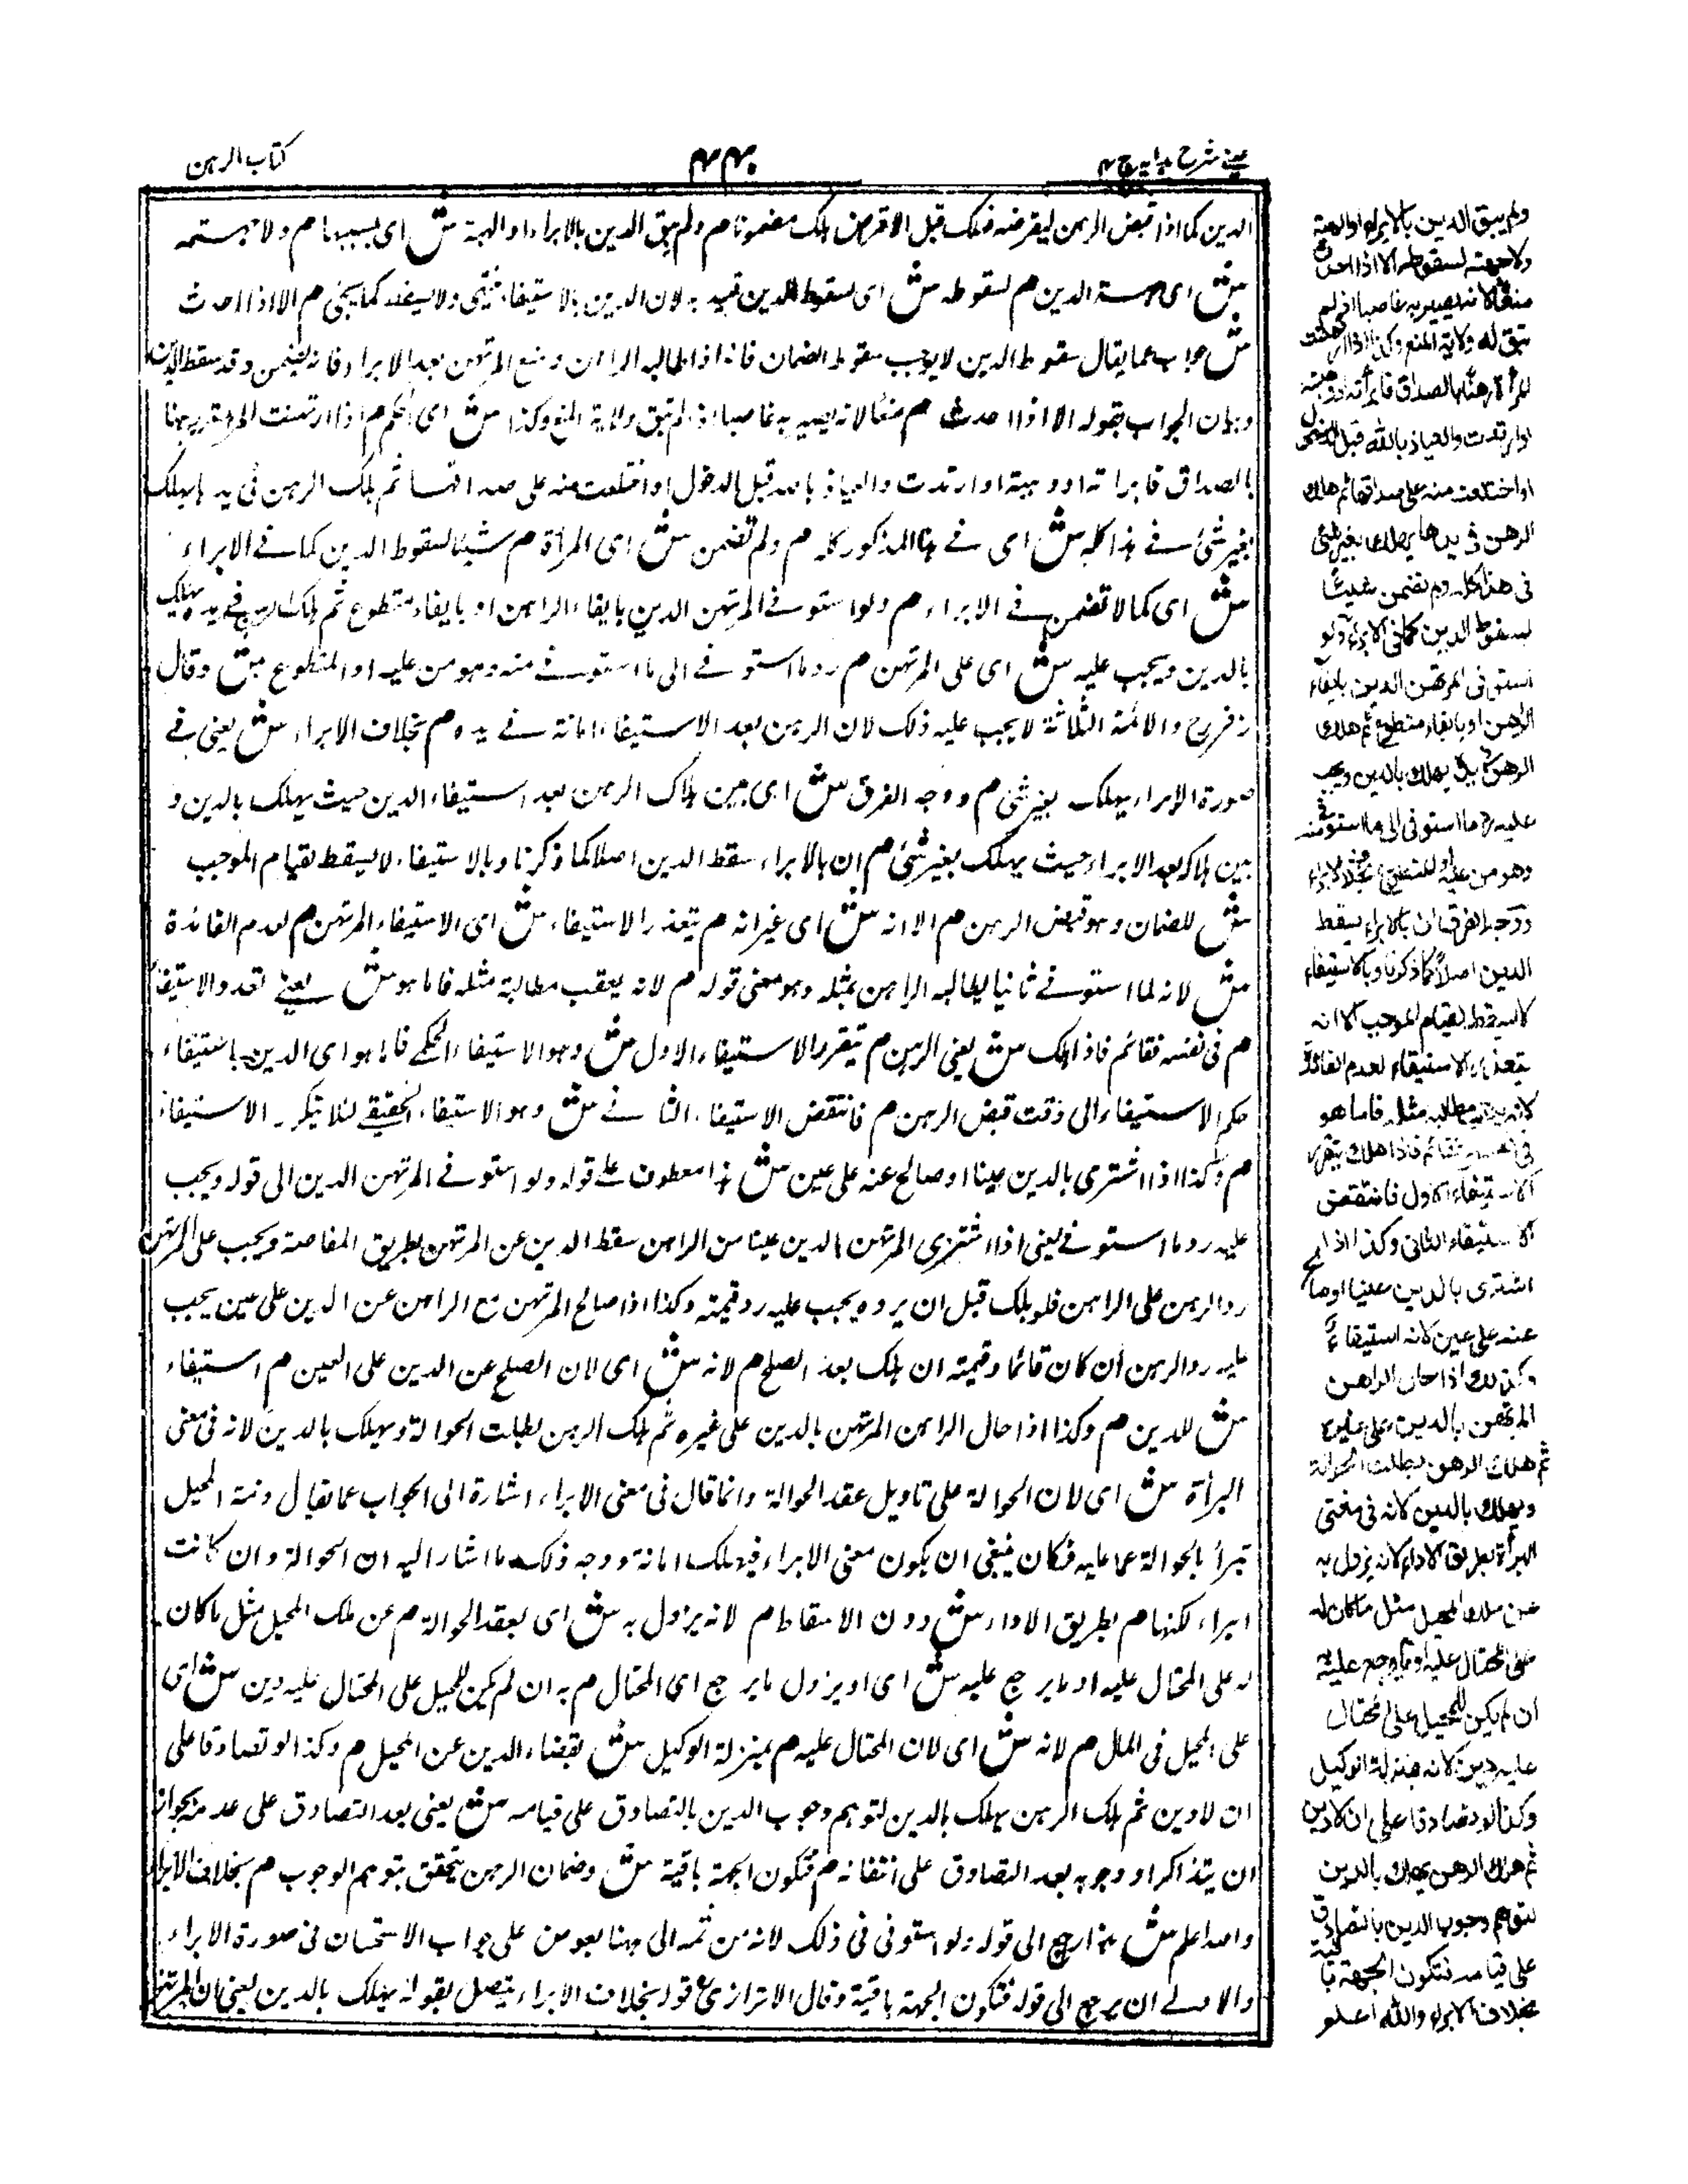 عيني شرح هداية ج ٤
٧٤٤
كتاب الرهن
الدين كما اذا قبض الرهن ليقرضه فهلك قبل الاقراض هلك مضمونا م ولم يبق الدين بالابراء او الهبة ش اى بسببهما م ولا جهته
ش اى جهة الدين م لسقوطه ش اى لسقوط الدين قيد به لان الدين بالاستيفاء ينتهى ولا يسقط كما يجئ م الا اذا احدث
ش جواب عما يقال سقوط الدين لا يوجب سقوط الضمان فانه اذا طالبه الراهن ومنع المرتهن بعد الابراء فانه يضمن وقد سقط الدين
وبيان الجواب بقوله الا اذا احدث م منعا لانه يصير به غاصبا اذ لم تبق ولاية المنع وكذا ش اى الحكم م اذا ارتهنت المرأة رهنا
بالصداق فابراته او وهبته او ارتدت والعياذ بالله قبل الدخول او اختلعت منه على صداقها ثم هلك الرهن فى يدها يهلك
بغير شئ فے هذا كله ش اى فے هذا المذكور كله م ولم تضمن ش اى المرأة م شيئا لسقوط الدين كما فے الابراء
ش اى كما لا تضمن فے الابراء م ولو استوفے المرتهن الدين بايفاء الراهن او بايفاء متطوع ثم هلك الرهن فے يده يهلك
بالدين ويجب عليه ش اى على المرتهن م رد ما استوفے الى ما استوفے منه وهو من عليه او المتطوع ش وقال
زفر رح والائمة الثلاثة لا يجب عليه ذلك لان الرهن بعد الاستيفاء امانة فے يده م بخلاف الابراء ش يعنى فے
صورة الابراء يهلك بغير شئ م ووجه الفرق ش اى بين هلاك الرهن بعد استيفاء الدين حيث يهلك بالدين و
بين هلاكه بعد الابراء حيث يهلك بغير شئ م ان بالابراء سقط الدين اصلا كما ذكرنا وبالاستيفاء لا يسقط لقيام الموجب
ش للضمان وهو قبض الرهن م الا انه ش اى غير انه م يتعذر الاستيفاء ش اى الاستيفاء المرتهن م لعدم الفائدة
ش لانه لما استوفے ثانيا يطالبه الراهن بمثله وهو معنى قوله م لانه يعقب مطالبة مثله فاما هو ش يعنے تعدد الاستيفاء
م فى نفسه فقائم فاذا هلك ش يعنى الرهن م يتقرر الاستيفاء الاول ش وهو الاستيفاء الحكمے فاما هو اى الدين باستيفاء
حكم الاستيفاء الى وقت قبض الرهن م فانتقض الاستيفاء الثانے ش وهو الاستيفاء الحقيقے لئلا يتكرر الاستيفاء
م وكذا اذا اشترى بالدين عينا او صالح عنه على عين ش هذا معطوف علے قوله ولو استوفے المرتهن الدين الى قوله ويجب
عليه رد ما استوفے يعنى اذا اشترى المرتهن بالدين عينا من الراهن سقط الدين عن المرتهن بطريق المقاصة ويجب على المرتهن
رد الرهن على الراهن فلو هلك قبل ان يرده يجب عليه رد قيمته وكذا اذا صالح المرتهن مع الراهن عن الدين على عين يجب
عليه رد الرهن ان كان قائما وقيمته ان هلك بعد الصلح م لانه ش اى لان الصلح عن الدين على العين م استيفاء
ش للدين م وكذا اذا حال الراهن المرتهن بالدين على غيره ثم هلك الرهن بطلت الحوالة ويهلك بالدين لانه فى معنى
البرأة ش اى لان الحوالة على تاويل عقد الحوالة وانما قال فى معنى الابراء اشارة الى الجواب عما يقال ذمة المحيل
تبرأ بالحوالة عما عليه فكان ينبغى ان يكون معنى الابراء فيهلك امانة ووجه ذلك ما اشار اليه ان الحوالة وان كانت
ابراء لكنها م بطريق الاداء ش دون الاسقاط م لانه يزول به ش اى بعقد الحوالة م عن ملك المحيل مثل ما كان
له على المحتال عليه او ما يرجع عليه ش اى او يزول ما يرجع اى المحتال م به ان لم يكن للمحيل على المحتال عليه دين ش اى
على المحيل فى المال م لانه ش اى لان المحتال عليه م بمنزلة الوكيل ش بقضاء الدين عن المحيل م وكذا لو تصادقا على
ان لا دين ثم هلك الرهن يهلك بالدين لتوهم وجوب الدين بالتصادق على قيامه ش يعنى بعد التصادق على عدمه يجواز
ان يتذاكرا وجوبه بعد التصادق على انتفائه م فتكون الجهة باقية ش وضمان الرهن يتحقق بتوهم الوجوب م بخلاف الابراء
والله اعلم ش هذا راجع الى قوله ولو استوفى فى ذلك لانه من ثمه الى هنا بعوض على جواب الاستحسان فى صورة الابراء
والاولے ان يرجع الى قوله فتكون الجهة باقية وقال الاترازى رح قوله بخلاف الابراء يتصل بقوله يهلك بالدين يعنى ان المرتهن
ولم يبق الدين بالابراء او الهبة
ولا جهته لسقوطه الا اذا احدث
منعا لانه يصير به غاصبا اذ لم
تبق له ولاية المنع وكذا اذا ارتهنت
المرأة رهنا بالصداق فابرأته او وهبته
او ارتدت والعياذ بالله قبل الدخول
او اختلعت منه على صداقها ثم هلك
الرهن فى يدها يهلك بغير شئ
فى هذا كله ولم تضمن شيئا
لسقوط الدين كما فى الابراء ولو
استوفى المرتهن الدين بايفاء
الراهن او بايفاء متطوع ثم هلك
الرهن فى يده يهلك بالدين ويجب
عليه رد ما استوفى الى ما استوفى منه
وهو من عليه او المتطوع بخلاف الابراء
ووجه الفرق ان بالابراء يسقط
الدين اصلا كما ذكرنا وبالاستيفاء
لا يسقط لقيام الموجب الا انه
يتعذر الاستيفاء لعدم الفائدة
لانه يعقب مطالبة مثله فاما هو
فى نفسه فقائم فاذا هلك يتقرر
الاستيفاء الاول فانتقض
الاستيفاء الثانى وكذا اذا
اشترى بالدين عينا او صالح
عنه على عين لانه استيفاء
وكذلك اذا حال الراهن
المرتهن بالدين على غيره
ثم هلك الرهن بطلت الحوالة
ويهلك بالدين لانه فى معنى
البرأة بطريق الاداء لانه يزول به
عن ملك المحيل مثل ما كان له
على المحتال عليه او ما يرجع عليه به
ان لم يكن للمحيل على المحتال
عليه دين لانه بمنزلة الوكيل
وكذا لو تصادقا على ان لا دين
ثم هلك الرهن يهلك بالدين
لتوهم وجوب الدين بالتصادق
على قيامه فتكون الجهة باقية
بخلاف الابراء والله اعلم